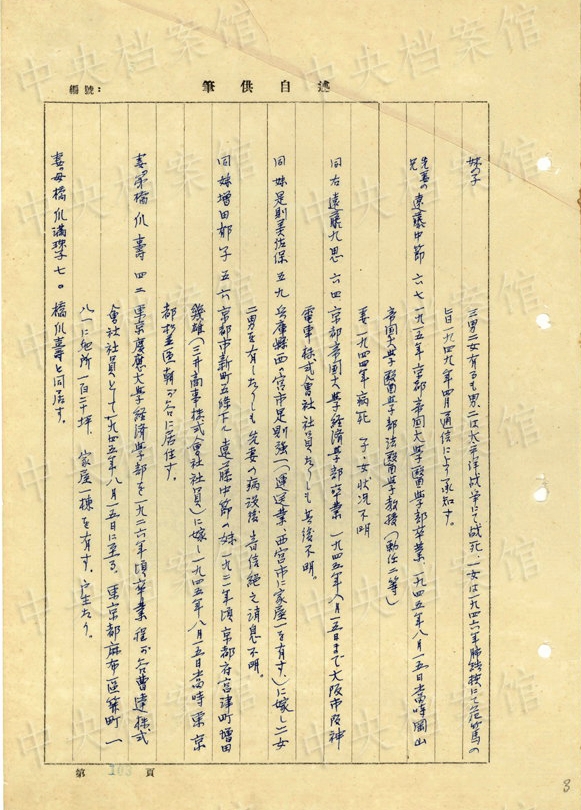 中央档案馆
編號:
筆供自述
妹の子
三男二女有るも男、二は太平洋战争にて战死、一女は一九四六年肺結核にて危篤の
旨一九四九年四月通信により承知す。
先妻の兄 遠藤中節 六七 一九一五年京都帝国大学醫学部卒業、一九四五年八月一五日当時岡山
帝国大学醫学部法醫学教授(勅任二等)
妻、一九四四年病死 子、女状況不明
同右遠藤九思 六四 京都帝国大学経済学部卒業 一九四五年八月一五日まで大阪市阪神
電車株式會社社員たりしも其後不明。
同 妹足則美佐保 五九 兵庫縣西の宮市足則強一(運送業、西宮市に家屋一を有す、)に嫁し二女
二男を有したりしも先妻の病没後音信絶之消息不明。
同 妹増田郁子 五六 京都市新町五條下ル遠藤中節の妹 一九二一年頃京都府宮津町増田
幾雄(三井商事株式會社社員)に嫁し一九四五年八月一五日当時東京
都杉並區 に居住す。
妻弟橋爪壽 四二 東京慶應大学経済学部を一九二六年頃卒業 保 谷曹達株式
會社社員として一九四五年八月一五日に至る。東京都麻布區 町一
八一に地所一百二十坪、家屋一棟を有す、
妻母橋爪満珠子 七〇 橋爪壽と同居す。
第 103 頁
3